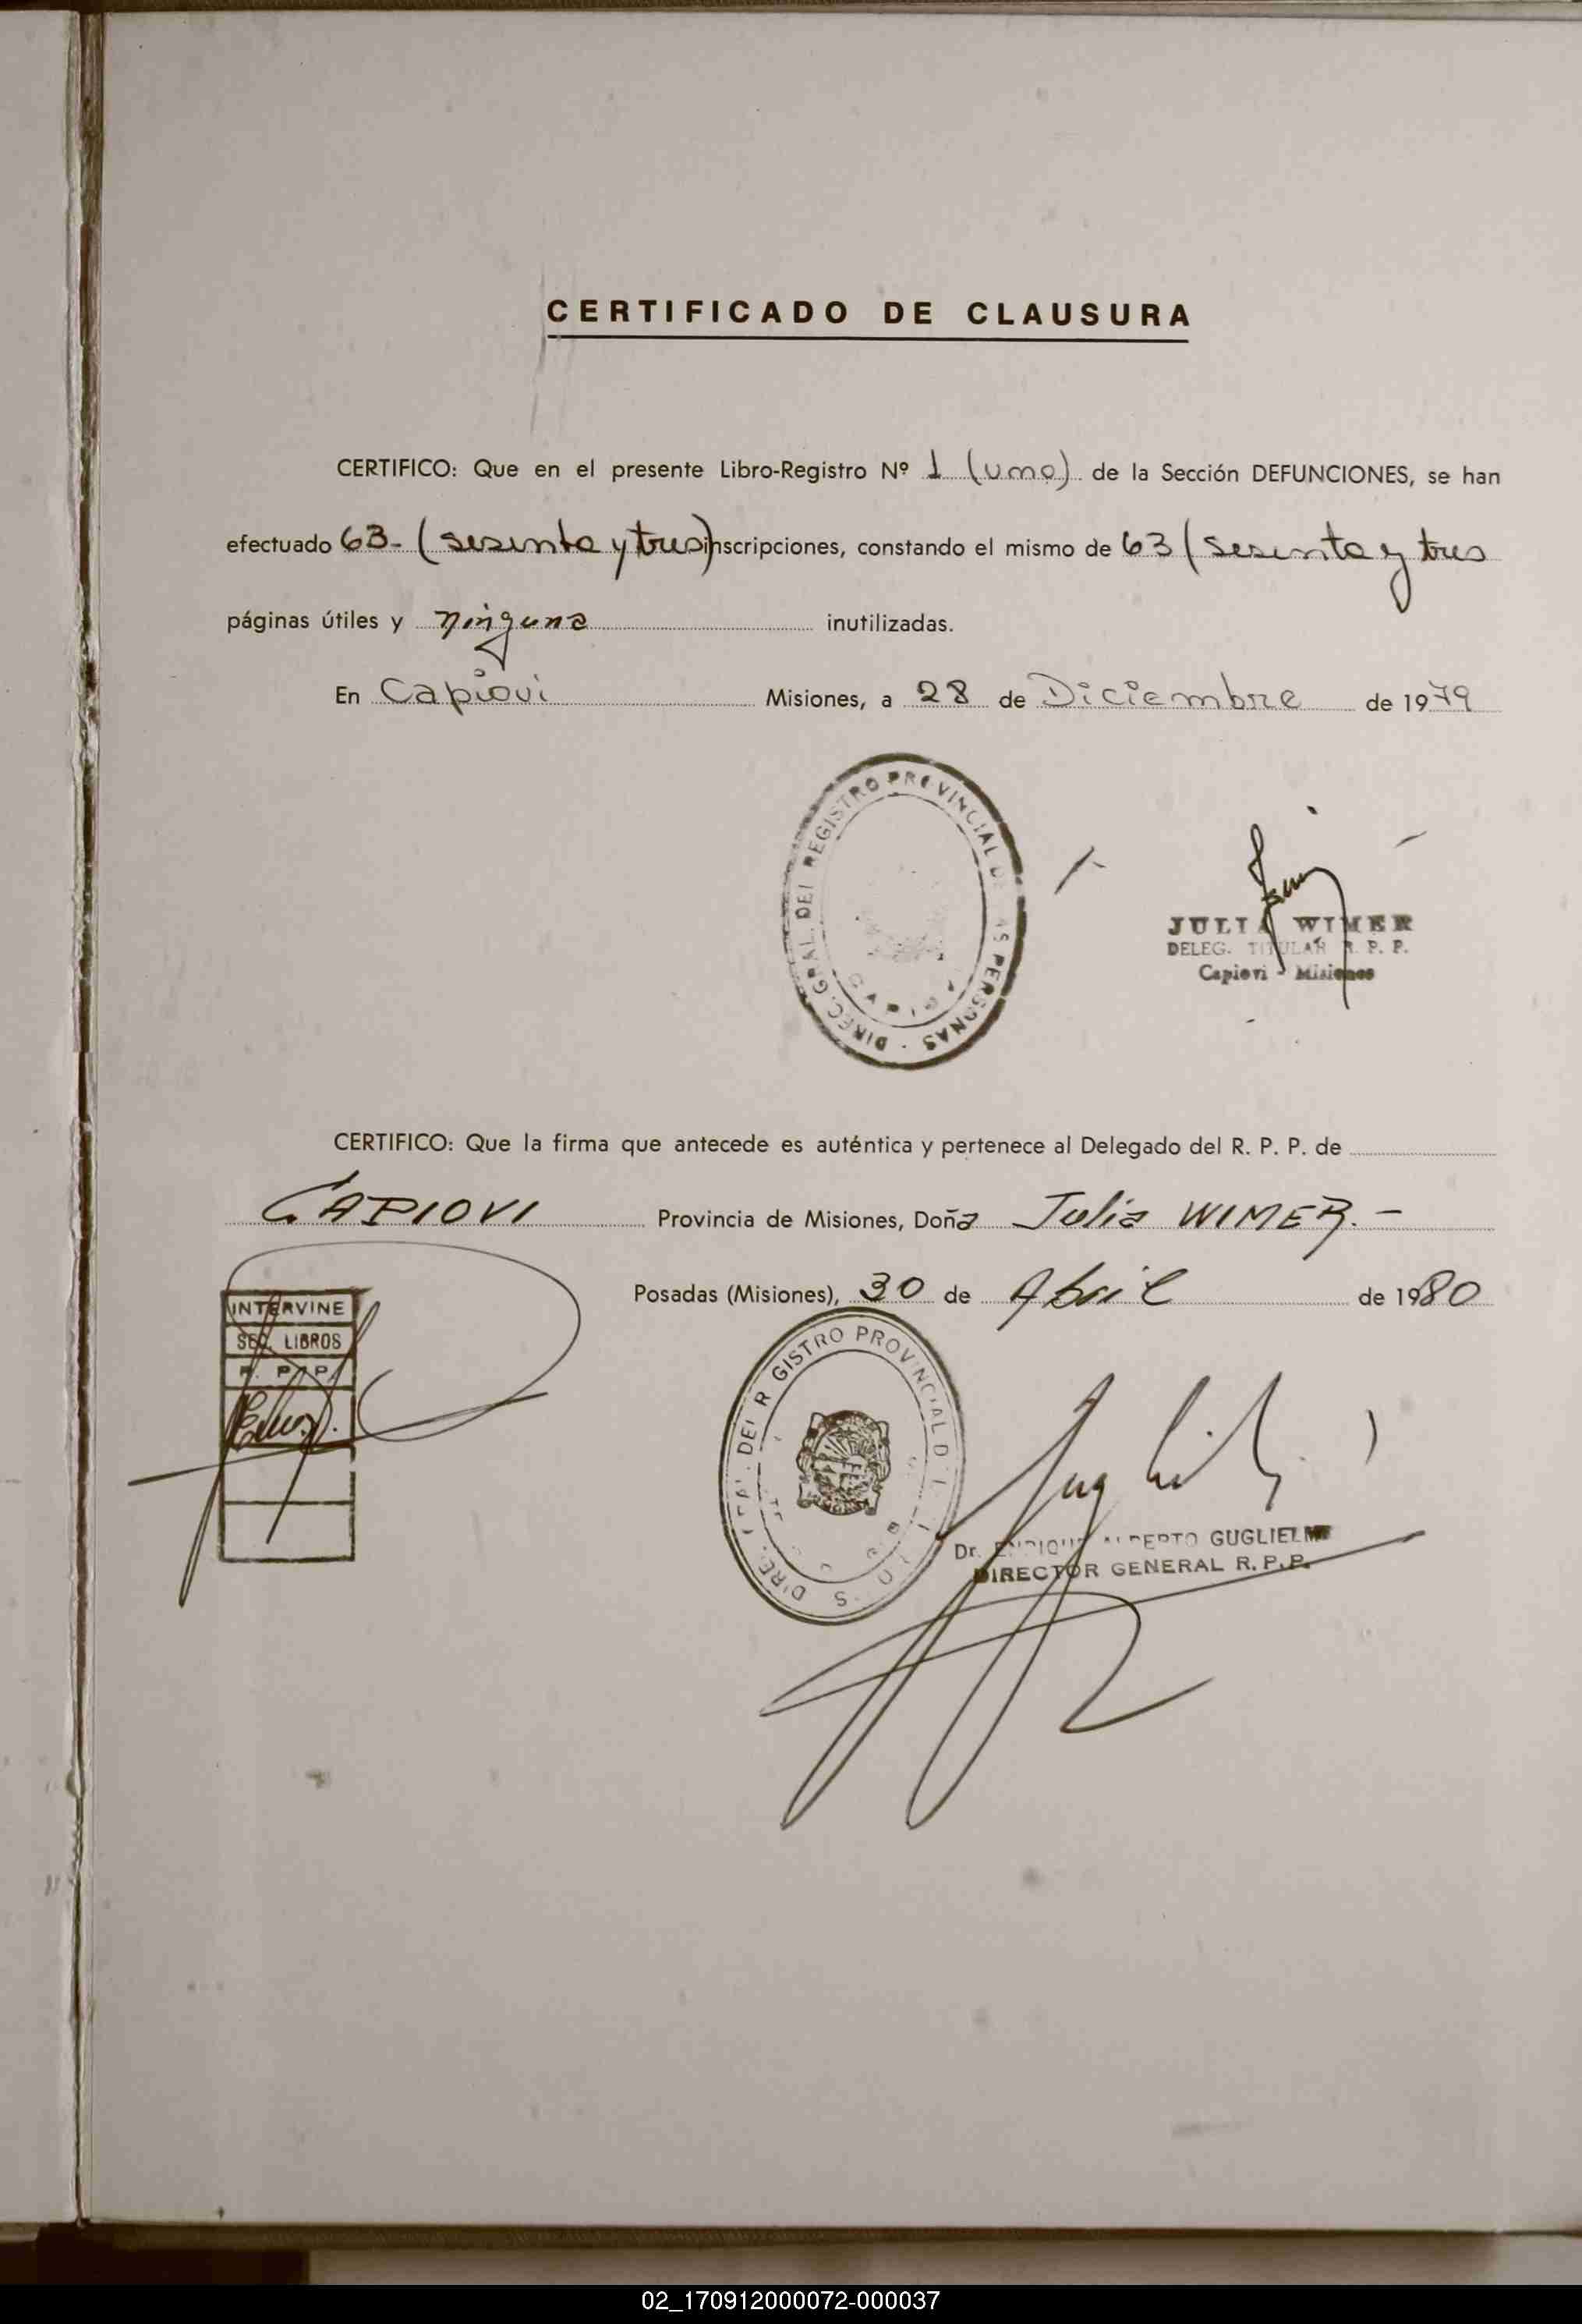 CERTIFICADO DE CLAUSURA
CERTIFICO: Que en el presente Libro-Registro Nº 1 (uno) de la Sección DEFUNCIONES, se han
efectuado 63- (sesenta y tres) inscripciones, constando el mismo de 63 (sesenta y tres
páginas útiles y ninguna inutilizadas.
En Capiovi Misiones, a 28 de Diciembre de 1979
DIREC. GRAL. DEL REGISTRO PROVINCIAL DE LAS PERSONAS
JULIA WIMER
DELEG. TITULAR R. P. P.
Capiovi - Misiones
CERTIFICO: Que la firma que antecede es auténtica y pertenece al Delegado del R. P. P. de
CAPIOVI Provincia de Misiones, Doña Julia WIMER.-
Posadas (Misiones), 30 de Abril de 1980
INTERVINE
SEC. LIBROS
R. P. P.
REGISTRO PROVINCIAL
Dr. ENRIQUE ALBERTO GUGLIELMI
DIRECTOR GENERAL R. P. P.
02_170912000072-000037